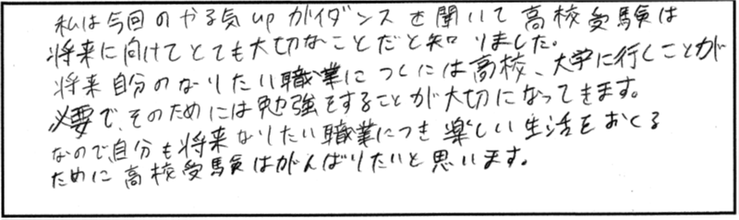 私は今回のやる気upガイダンスを聞いて高校受験は
将来に向けてとても大切なことだと知りました。
将来自分のなりたい職業につくには高校、大学に行くことが
必要で、そのためには勉強をすることが大切になってきます。
なので、自分も将来なりたい職業につき楽しい生活をおくる
ために高校受験はがんばりたいと思います。